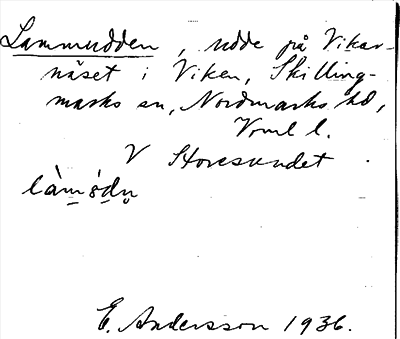 Lammudden, udde på Vikar-
näset i Viken, Skilling-
marks sn, Nordmarks hd,
Vrml l.
V Storesundet.
làmºdn̥
E. Andersson 1936.